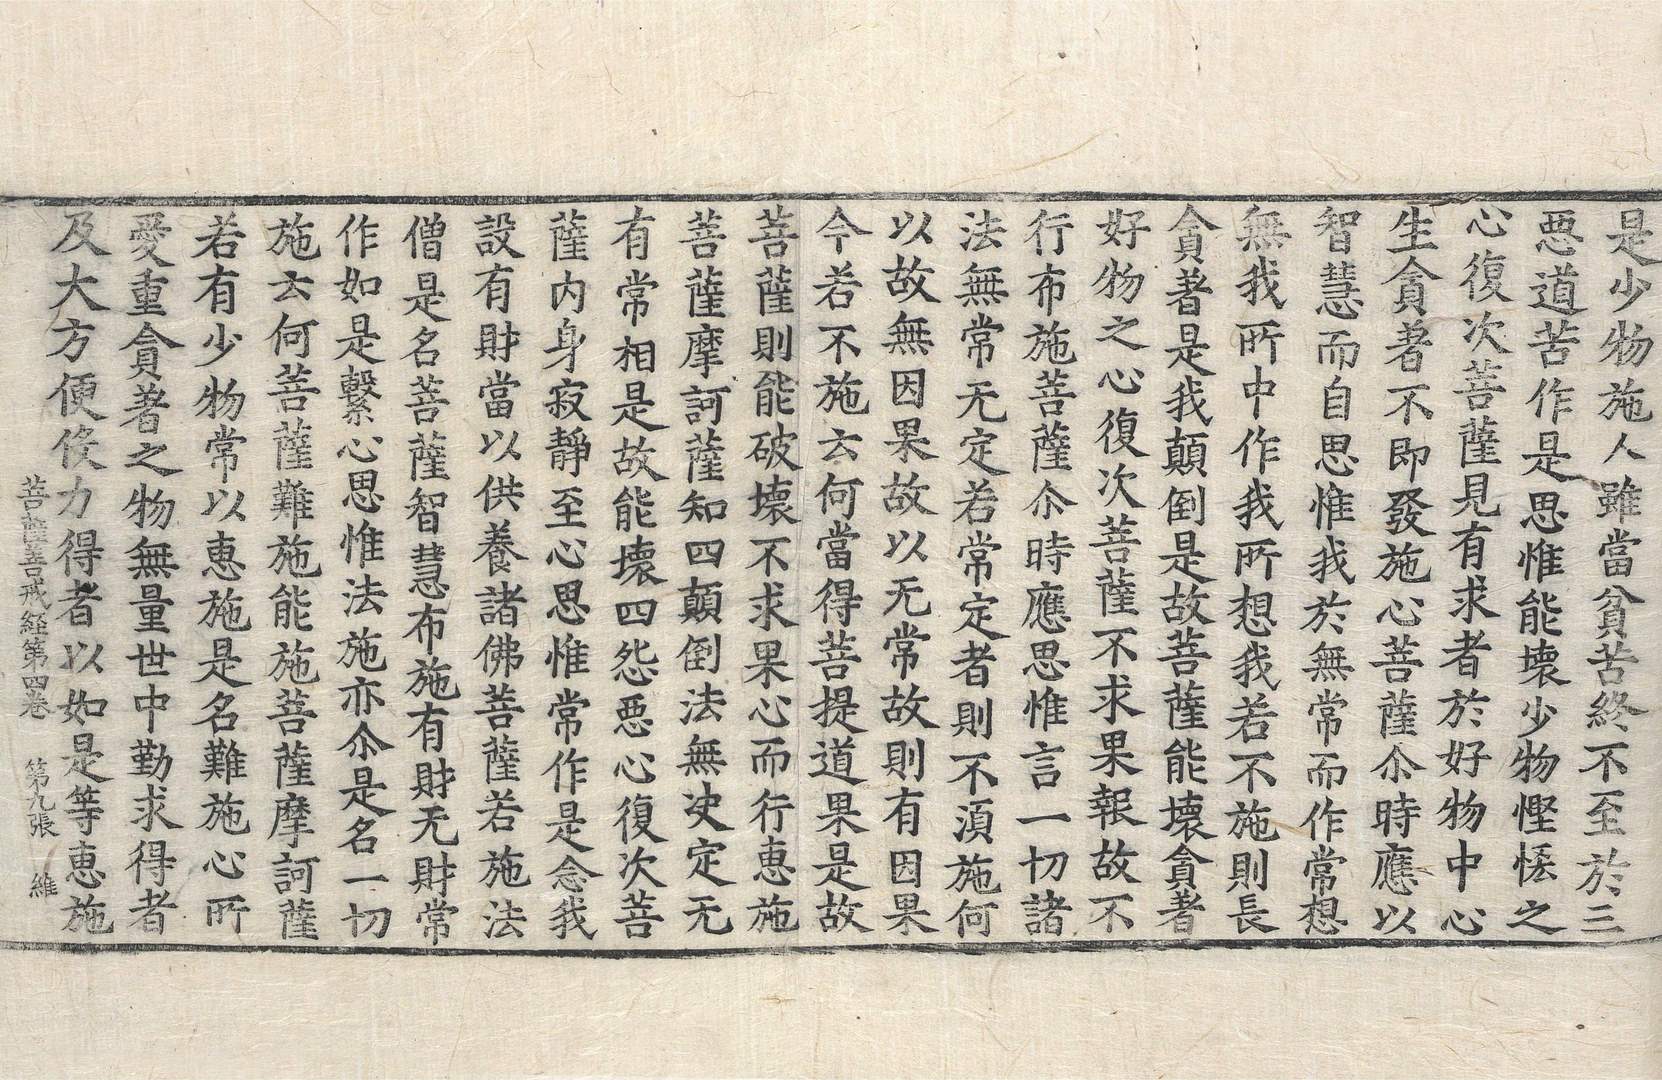 是少物施人雖當貧苦終不至於三
惡道苦作是思惟能壞少物慳悋之
心復次菩薩見有求者於好物中心
生貪著不即發施心菩薩尒時應以
智慧而自思惟我於無常而作常想
無我所中作我所想我若不施則長
貪著是我顛倒是故菩薩能壞貪著
好物之心復次菩薩不求果報故不
行布施菩薩尒時應思惟言一切諸
法無常无定若常定者則不湏施何
以故無因果故以无常故則有因果
今若不施云何當得菩提道果是故
菩薩則能破壞不求果心而行惠施
菩薩摩訶薩知四顛倒法無决定无
有常相是故能壞四怨惡心復次菩
薩內身寂靜至心思惟常作是念我
設有財當以供養諸佛菩薩若施法
僧是名菩薩智慧布施有財无財常
作如是繫心思惟法施亦尒是名一切
施云何菩薩難施能施菩薩摩訶薩
若有少物常以惠施是名難施心所
愛重貪著之物無量世中勤求得者
及大方便伇力得者以如是等惠施
菩薩善戒經第四卷 第九張 維